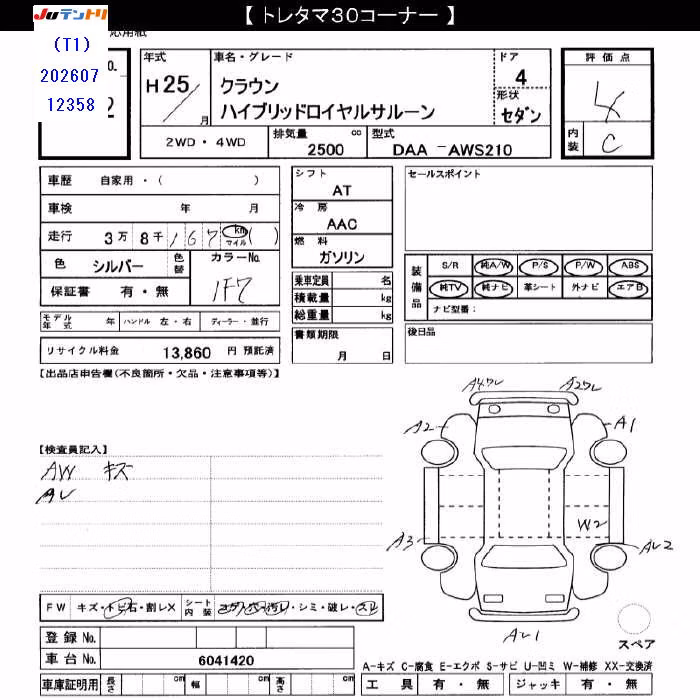 【 トレタマ30コーナー 】
JUテントリ
応用紙
(T1)
202607
12358
2
年式
H25/
月
車名・グレード
クラウン
ハイブリッドロイヤルサルーン
ドア
4
形状
セダン
評価点
4
内装
C
2WD・4WD
排気量 cc
2500
型式
DAA -AWS210
車歴 自家用・( )
車検 年 月
走行 3万 8千 167 km マイル ( )
色 シルバー 色替
カラーNo.
1F7
保証書 有・無
モデル年式 年 ハンドル 左・右 ディーラー・並行
リサイクル料金 13,860 円 預託済
シフト
AT
冷房
AAC
燃料
ガソリン
乗車定員 名
積載量 kg
総重量 kg
書類期限
月 日
セールスポイント
装備品
S/R 純A/W P/S P/W ABS
純TV 純ナビ 革シート 外ナビ エアB
ナビ型番:
後日品
【出品店申告欄(不良箇所・欠品・注意事項等)】
【検査員記入】
AW キズ
A2
A1
A3
W2
スペア
FW キズ・トビ石・割レX シート内装 コゲ・穴・汚レ・シミ・破レ・スレ
登録 No.
車台 No. 6041420
車庫証明用 長さ cm 幅 cm 高さ cm
A-キズ C-腐食 E-エクボ S-サビ U-凹ミ W-補修 XX-交換済
工具 有・無 ジャッキ 有・無